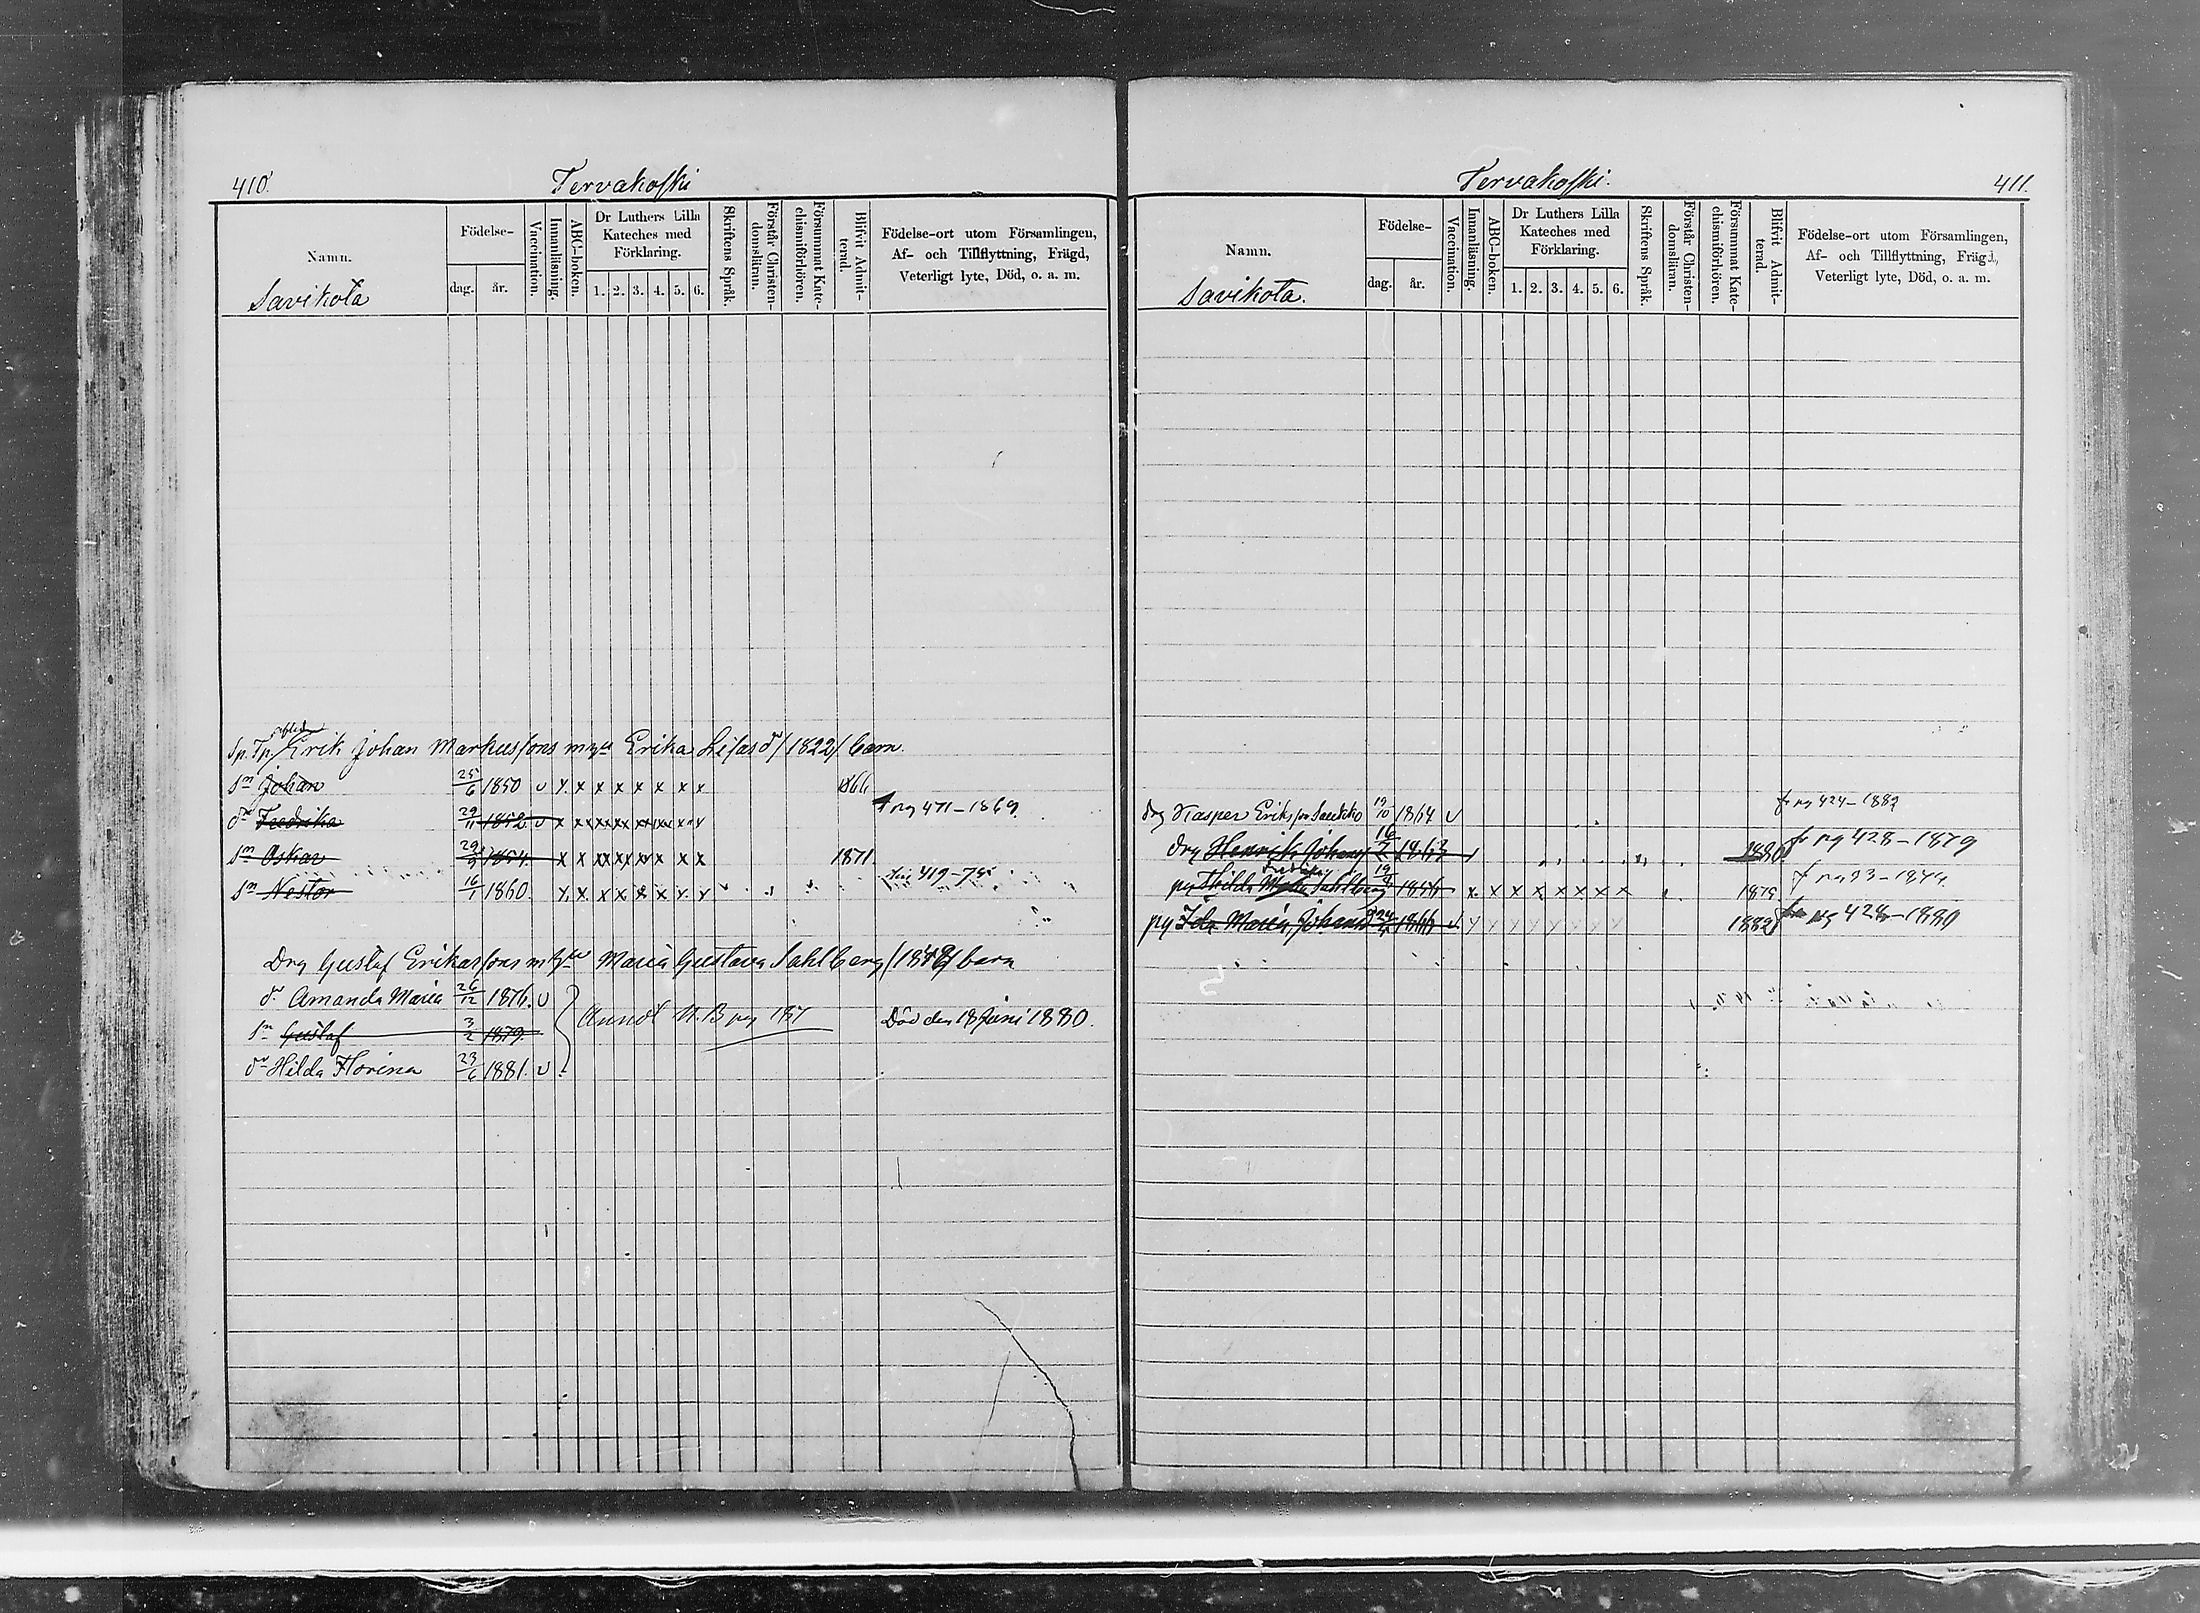 410.
Tervakoski
Namn.
Savikota
Födelse-
dag.
år.
Vaccination.
Innanläsning.
ABC-boken.
Dr Luthers Lilla
Kateches med
Förklaring.
1. 2. 3. 4. 5. 6.
Skriftens Språk.
Förstår Christen-
domsläran.
Försummat Kate-
chismiförhören.
Blifvit Admit-
terad.
Födelse-ort utom Församlingen,
Af- och Tillflyttning, Frägd,
Veterligt lyte, Död, o. a. m.
Erik Johan Markussons Erika 1822/ barn.
Sn Johan 25/6 1850 v x x x x x x x x 1866
dr Fredrika 29/11 1852 v x x x x x x x x pg 471-1869
Sn Oskar 29/9 1854 x x x x x x x x 1871
Sn Nestor 16/1 1860 x x x x x x x x 419-75
Drg Gustaf Erikssons Maria Gustava Sahlberg barn
dr Amanda Maria 26/12 1876. v
Sn Gustaf 3/2 1879. Död den 18 Juni 1880.
dr Hilda Florina 23/6 1881. v
Tervakoski.
411.
Namn.
Savikota.
Födelse-
dag.
år.
Vaccination.
Innanläsning.
ABC-boken.
Dr Luthers Lilla
Kateches med
Förklaring.
1. 2. 3. 4. 5. 6.
Skriftens Språk.
Förstår Christen-
domsläran.
Försummat Kate-
chismiförhören.
Blifvit Admit-
terad.
Födelse-ort utom Församlingen,
Af- och Tillflyttning, Frägd,
Veterligt lyte, Död, o. a. m.
drg Kasper 1864 v
drg Henrik Johans 16/7 1863 1880 fr pg 428-1879
pg Hilda Sahlberg 1856 x x x x x x x x 1875
pg Ida Maria Johans 1866 v 1882 pg 428-1880